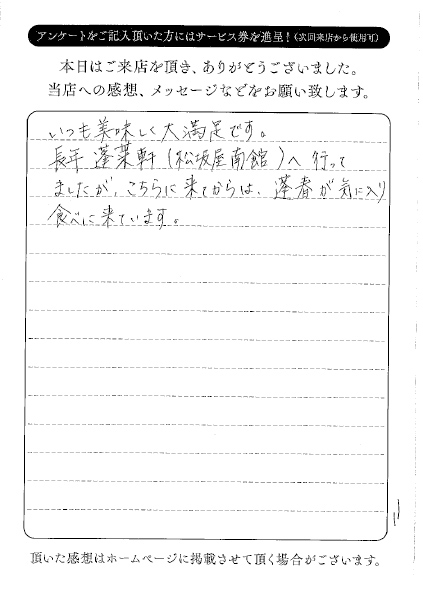 アンケートをご記入頂いた方にはサービス券を進呈！(次回来店から使用可)
本日はご来店を頂き、ありがとうございました。
当店への感想、メッセージなどをお願い致します。
いつも美味しく大満足です。
長年 蓬莱軒 (松坂屋南館) へ 行って
ましたが、こちらに来てからは、蓬春が気に入り
食べに来ています。
頂いた感想はホームページに掲載させて頂く場合がございます。